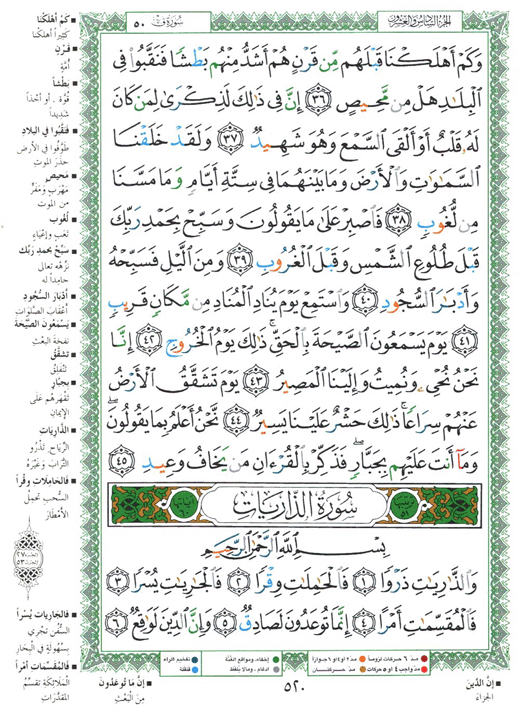 الجزء السادس والعشرون
سُورَةُ قٓ ٥٠
وَكَمْ أَهْلَكْنَا قَبْلَهُم مِّن قَرْنٍ هُمْ أَشَدُّ مِنْهُم بَطْشًا فَنَقَّبُوا۟ فِى
ٱلْبِلَـٰدِ هَلْ مِن مَّحِيصٍ ٣٦ إِنَّ فِى ذَٰلِكَ لَذِكْرَىٰ لِمَن كَانَ
لَهُۥ قَلْبٌ أَوْ أَلْقَى ٱلسَّمْعَ وَهُوَ شَهِيدٌ ٣٧ وَلَقَدْ خَلَقْنَا
ٱلسَّمَـٰوَٰتِ وَٱلْأَرْضَ وَمَا بَيْنَهُمَا فِى سِتَّةِ أَيَّامٍ وَمَا مَسَّنَا
مِن لُّغُوبٍ ٣٨ فَٱصْبِرْ عَلَىٰ مَا يَقُولُونَ وَسَبِّحْ بِحَمْدِ رَبِّكَ
قَبْلَ طُلُوعِ ٱلشَّمْسِ وَقَبْلَ ٱلْغُرُوبِ ٣٩ وَمِنَ ٱلَّيْلِ فَسَبِّحْهُ
وَأَدْبَـٰرَ ٱلسُّجُودِ ٤٠ وَٱسْتَمِعْ يَوْمَ يُنَادِ ٱلْمُنَادِ مِن مَّكَانٍ قَرِيبٍ
٤١ يَوْمَ يَسْمَعُونَ ٱلصَّيْحَةَ بِٱلْحَقِّ ۚ ذَٰلِكَ يَوْمُ ٱلْخُرُوجِ ٤٢ إِنَّا
نَحْنُ نُحْىِۦ وَنُمِيتُ وَإِلَيْنَا ٱلْمَصِيرُ ٤٣ يَوْمَ تَشَقَّقُ ٱلْأَرْضُ
عَنْهُمْ سِرَاعًا ۚ ذَٰلِكَ حَشْرٌ عَلَيْنَا يَسِيرٌ ٤٤ نَّحْنُ أَعْلَمُ بِمَا يَقُولُونَ ۖ
وَمَآ أَنتَ عَلَيْهِم بِجَبَّارٍ ۖ فَذَكِّرْ بِٱلْقُرْءَانِ مَن يَخَافُ وَعِيدِ ٤٥
سُورَةُ الذَّارِيَاتِ
بِسْمِ ٱللَّهِ ٱلرَّحْمَـٰنِ ٱلرَّحِيمِ
وَٱلذَّٰرِيَـٰتِ ذَرْوًا ١ فَٱلْحَـٰمِلَـٰتِ وِقْرًا ٢ فَٱلْجَـٰرِيَـٰتِ يُسْرًا ٣
فَٱلْمُقَسِّمَـٰتِ أَمْرًا ٤ إِنَّمَا تُوعَدُونَ لَصَادِقٌ ٥ وَإِنَّ ٱلدِّينَ لَوَٰقِعٌ ٦
كَمْ أَهْلَكْنَا
كثيراً أهلكنا
قَرْنٍ
أُمَّةٍ
بَطْشاً
قُوَّة . أو أخذاً
شديداً
فَنَقَّبُوا في البِلَادِ
طَوَّفُوا في الأرض
حَذَرَ الموتِ
مَحِيصٍ
مَهْرَبٍ ومَفَرٍّ
من الموت
لُغُوبٍ
تعبٍ وإعْيَاءٍ
سَبِّحْ بحمدِ رَبِّكَ
نَزِّهْه تعالى
حامداً له
أدْبَارَ السُّجُودِ
أعْقَابَ الصَّلَوَاتِ
يَسْمَعُونَ الصَّيْحَةَ
نَفْخَةَ البَعْثِ
تَشَقَّقُ
تَنْفَلِقُ
بِجَبَّارٍ
تقْهَرهُم على
الإيمان
الذَّارِيَاتِ
الرِّيَاح . تَذْرُو
التُّرَابَ وَغَيْرَهُ
فَالْحَامِلَاتِ وِقْراً
السُّحُبِ تَحْمِلُ
الأمْطَارَ
فَالْجَارِيَاتِ يُسْراً
السُّفُنِ تَجْرِي
بِسُهُولَةٍ في البِحَارِ
فَالْمُقَسِّمَاتِ أمْراً
المَلائِكَةِ تُقَسِّمُ
المُقَدَّرَاتِ
إنَّ مَا تُوعَدُونَ
مِنَ البَعْثِ
إنَّ الدِّينَ
الجَزَاءَ
مد ٦ حركات لزوماً
مد ٢ او ٤ او ٦ جوازاً
إخفاء، ومواقع الغنة
تفخيم الراء
مد واجب ٤ او ٥ حركات
مد حركتان
ادغام ، ومالا يلفظ
قلقلة
٥٢٠